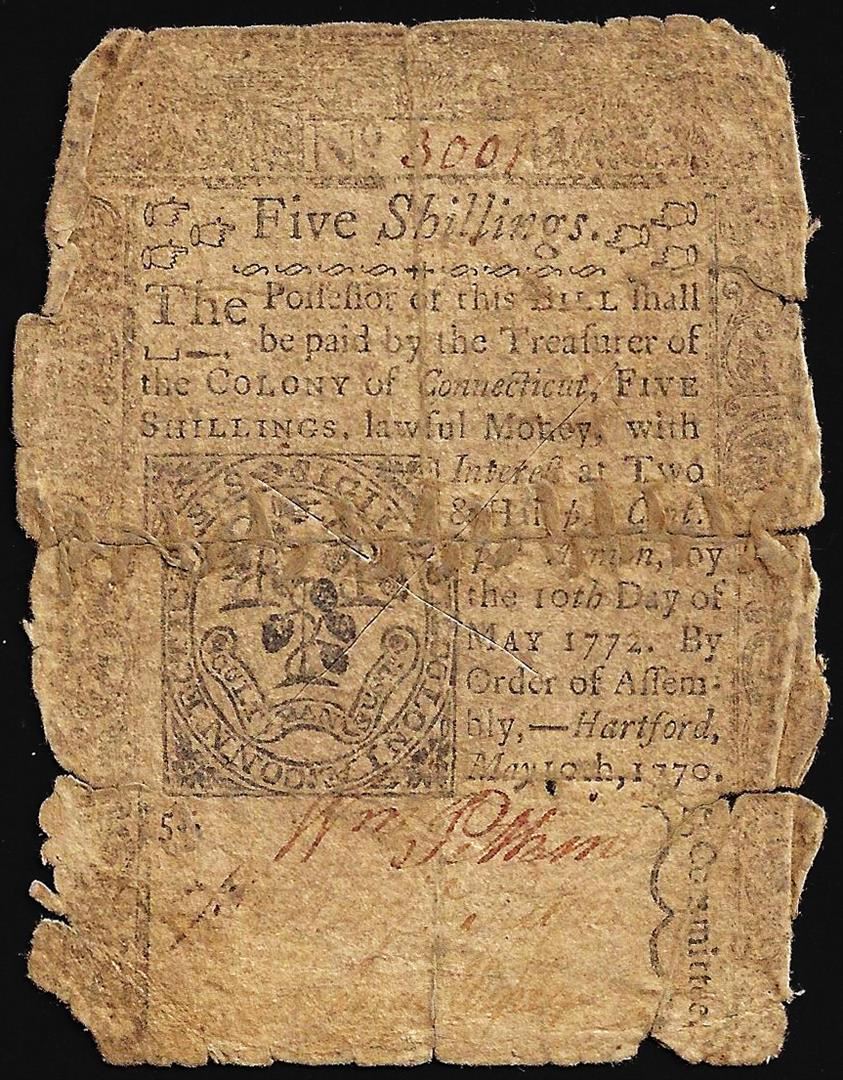 No 3001
Five Shillings.
The Poſſeſſor of this BILL ſhall
be paid by the Treaſurer of
the COLONY of Connecticut, FIVE
SHILLINGS, lawful Money, with
Intereſt at Two
& Half p. Cent.
p. Annum, by
the 10th Day of
MAY 1772. By
Order of Aſſem-
bly,—Hartford,
May 10th, 1770.
SIGIL
COLONI
CONNECTIC
5s.
Wm Pitkin
Committee